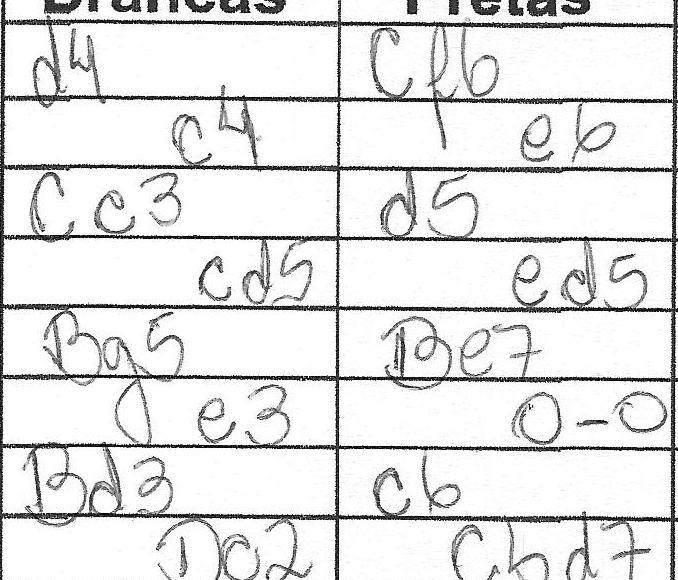 Brancas Pretas
d4 Cf6
c4 e6
Cc3 d5
cd5 ed5
Bg5 Be7
e3 0-0
Bd3 c6
Dc2 Cbd7